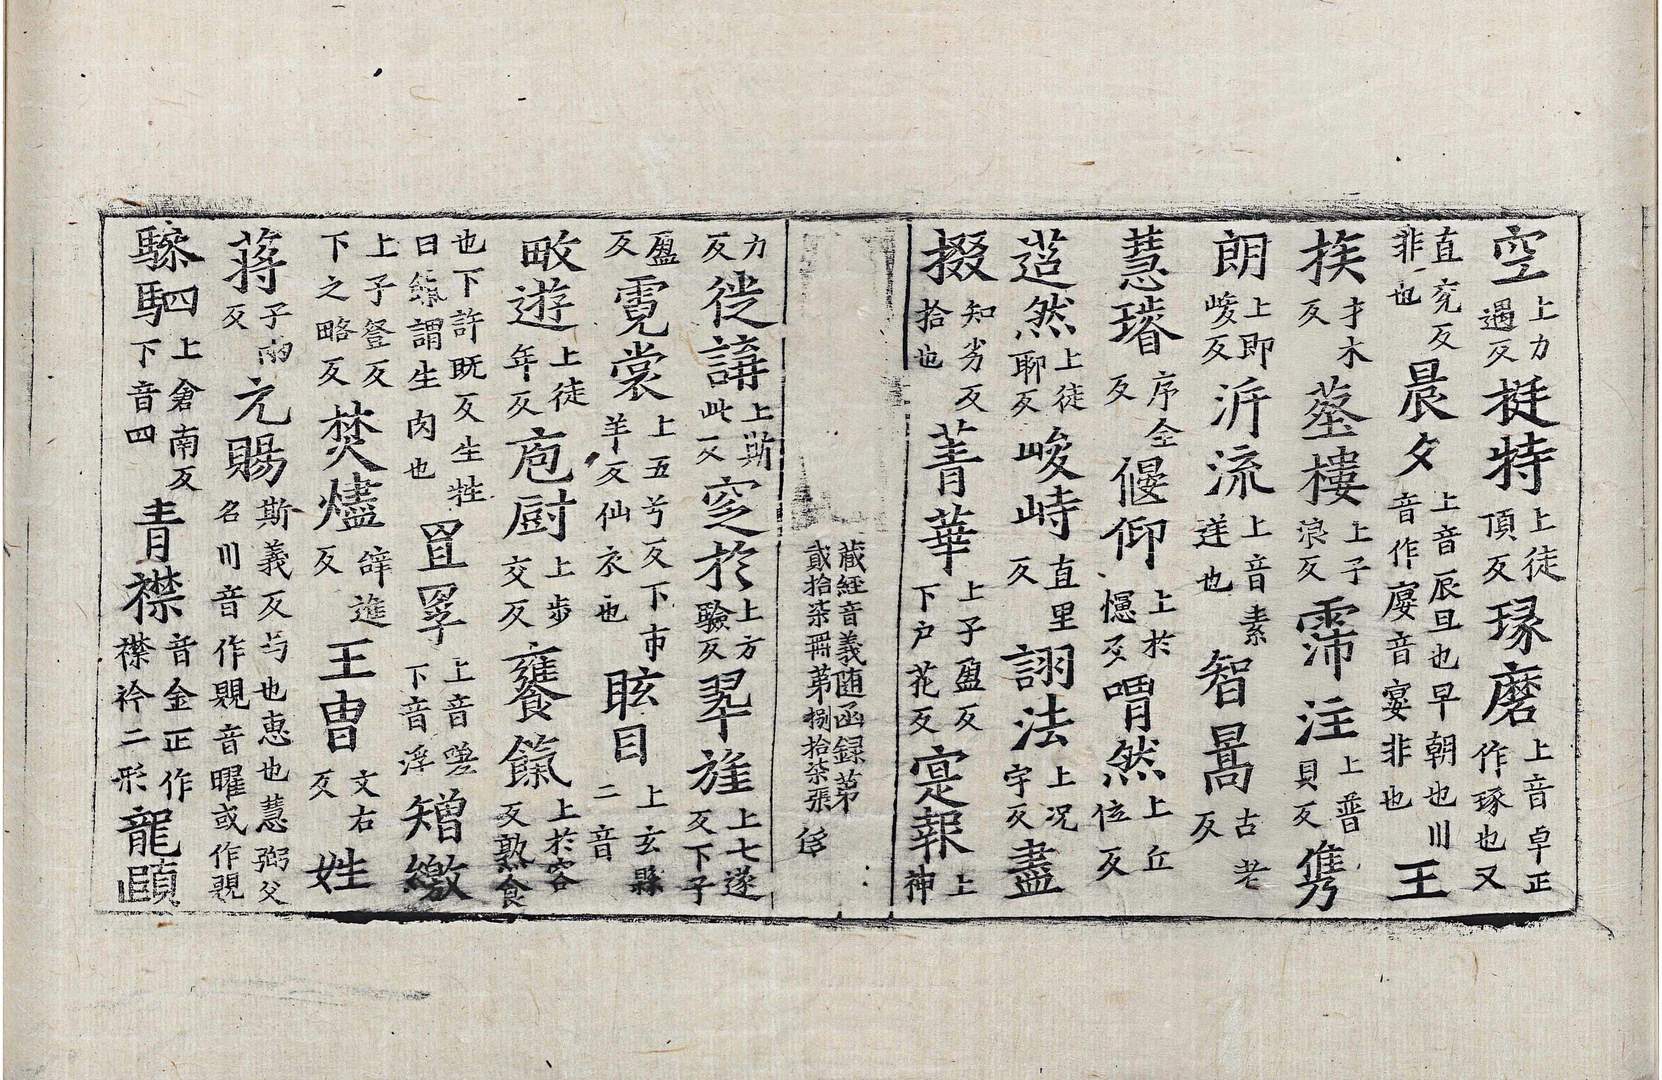 空上力遇反挺特上徒頂反琢磨上音卓正作琢也又
直兖反非也晨夕上音辰旦也早朝也川音作㝛音宴非也王
族才木反蕐樓上子浪反霈注上普貝反儁
朗上即峻反泝流上音素逆也智暠古老反
慧璿序全反偃仰上於憾反喟然上丘位反
迢然上徒聊反峻峙直里反詡法上况宇反盡
掇知劣反拾也菁華上子盈反下户花反寔報上神
藏經音義随函録第貳拾柒冊第捌拾柒張
力反徙講上斯此反窆於上方驗反翠旌上七遂反下子
盈反霓裳上五兮反下市羊反仙衣也眩目上玄縣二音
畋遊上徒年反庖厨上步交反饔餼上於容反熟食
也下許既反生牲曰餼謂生肉也罝罦上音嗟下音浮矰繳
上子登反下之略反焚燼辝進反王曺文右反姓
蔣子兩反元賜斯義反与也惠也慧弼父名川音作覞音曜或作覞
驂駟上倉南反下音四青襟音金正作襟衿二形龍頤